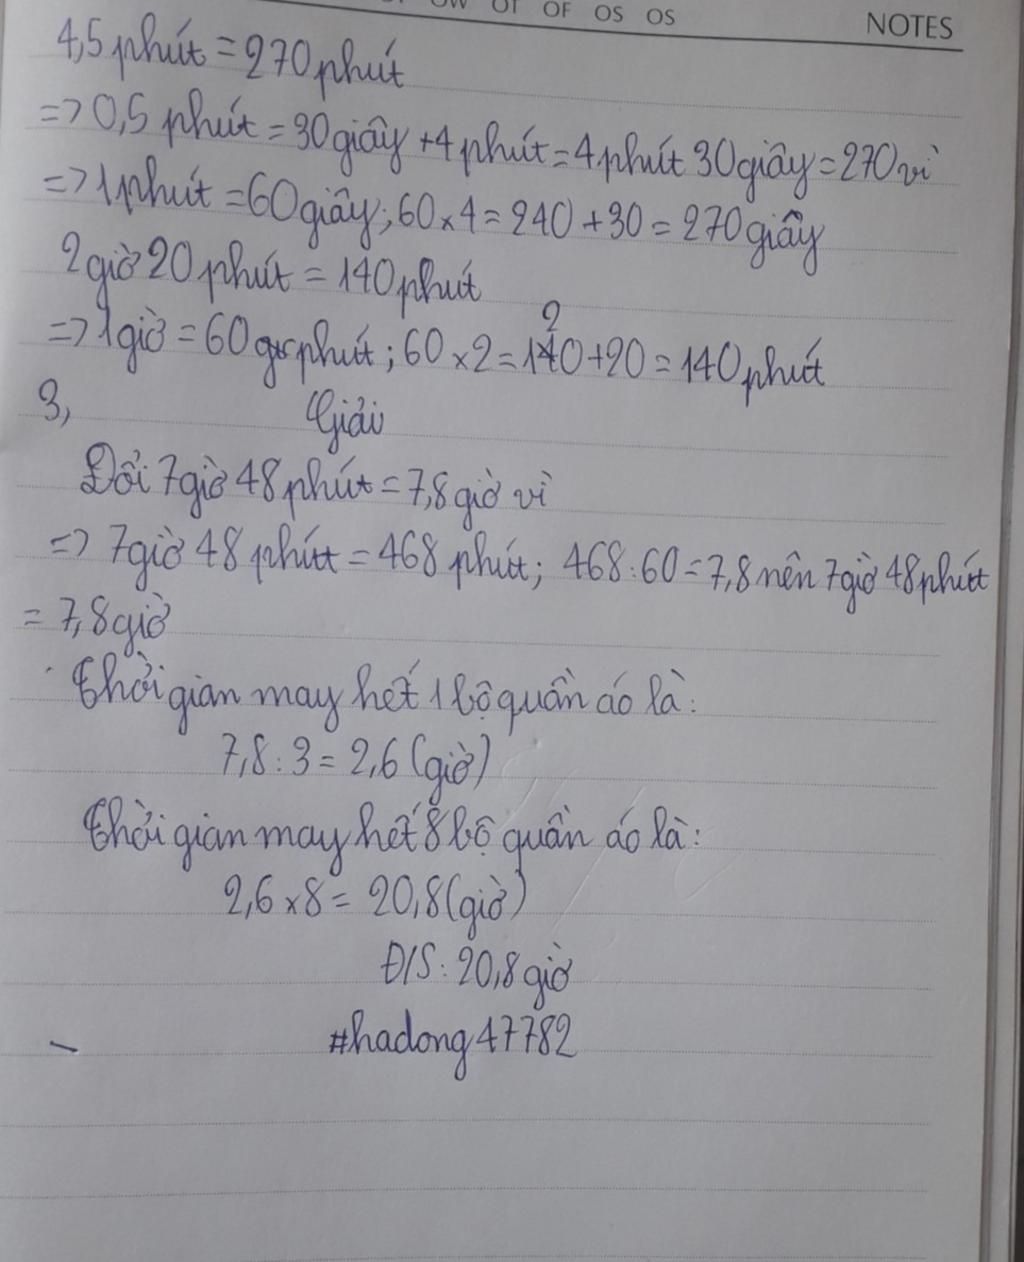 OW OT OF OS OS NOTES
4,5 phút = 270 phút
=> 0,5 phút = 30 giây + 4 phút = 4 phút 30 giây = 270 vì
=> 1 phút = 60 giây; 60 x 4 = 240 + 30 = 270 giây
2 giờ 20 phút = 140 phút
=> 1 giờ = 60 phút; 60 x 2 = 120 + 20 = 140 phút
3, Giải
Đổi 7 giờ 48 phút = 7,8 giờ vì
=> 7 giờ 48 phút = 468 phút; 468 : 60 = 7,8 nên 7 giờ 48 phút
= 7,8 giờ
Thời gian may hết 1 bộ quần áo là:
7,8 : 3 = 2,6 (giờ)
Thời gian may hết 8 bộ quần áo là:
2,6 x 8 = 20,8 (giờ)
Đ/S: 20,8 giờ
#hadong47782